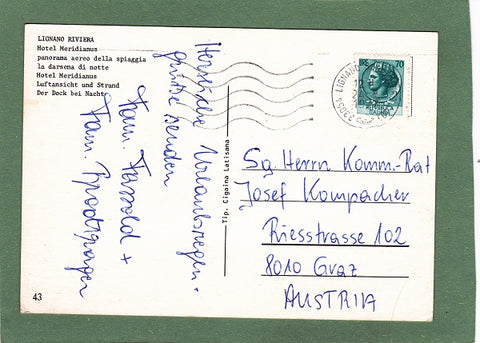 LIGNANO RIVIERA
Hotel Meridianus
panorama aereo della spiaggia
la darsena di notte
Hotel Meridianus
Luftansicht und Strand
Der Dock bei Nacht
Herzliche Urlaubsregen-
grüße senden
Fam. Fassold +
Fam.
43
Tip. Cigaina Latisana
70
33054 LIGNANO
Sg. Herrn Komm.-Rat
Josef Kompacher
Riesstrasse 102
8010 Graz
AUSTRIA